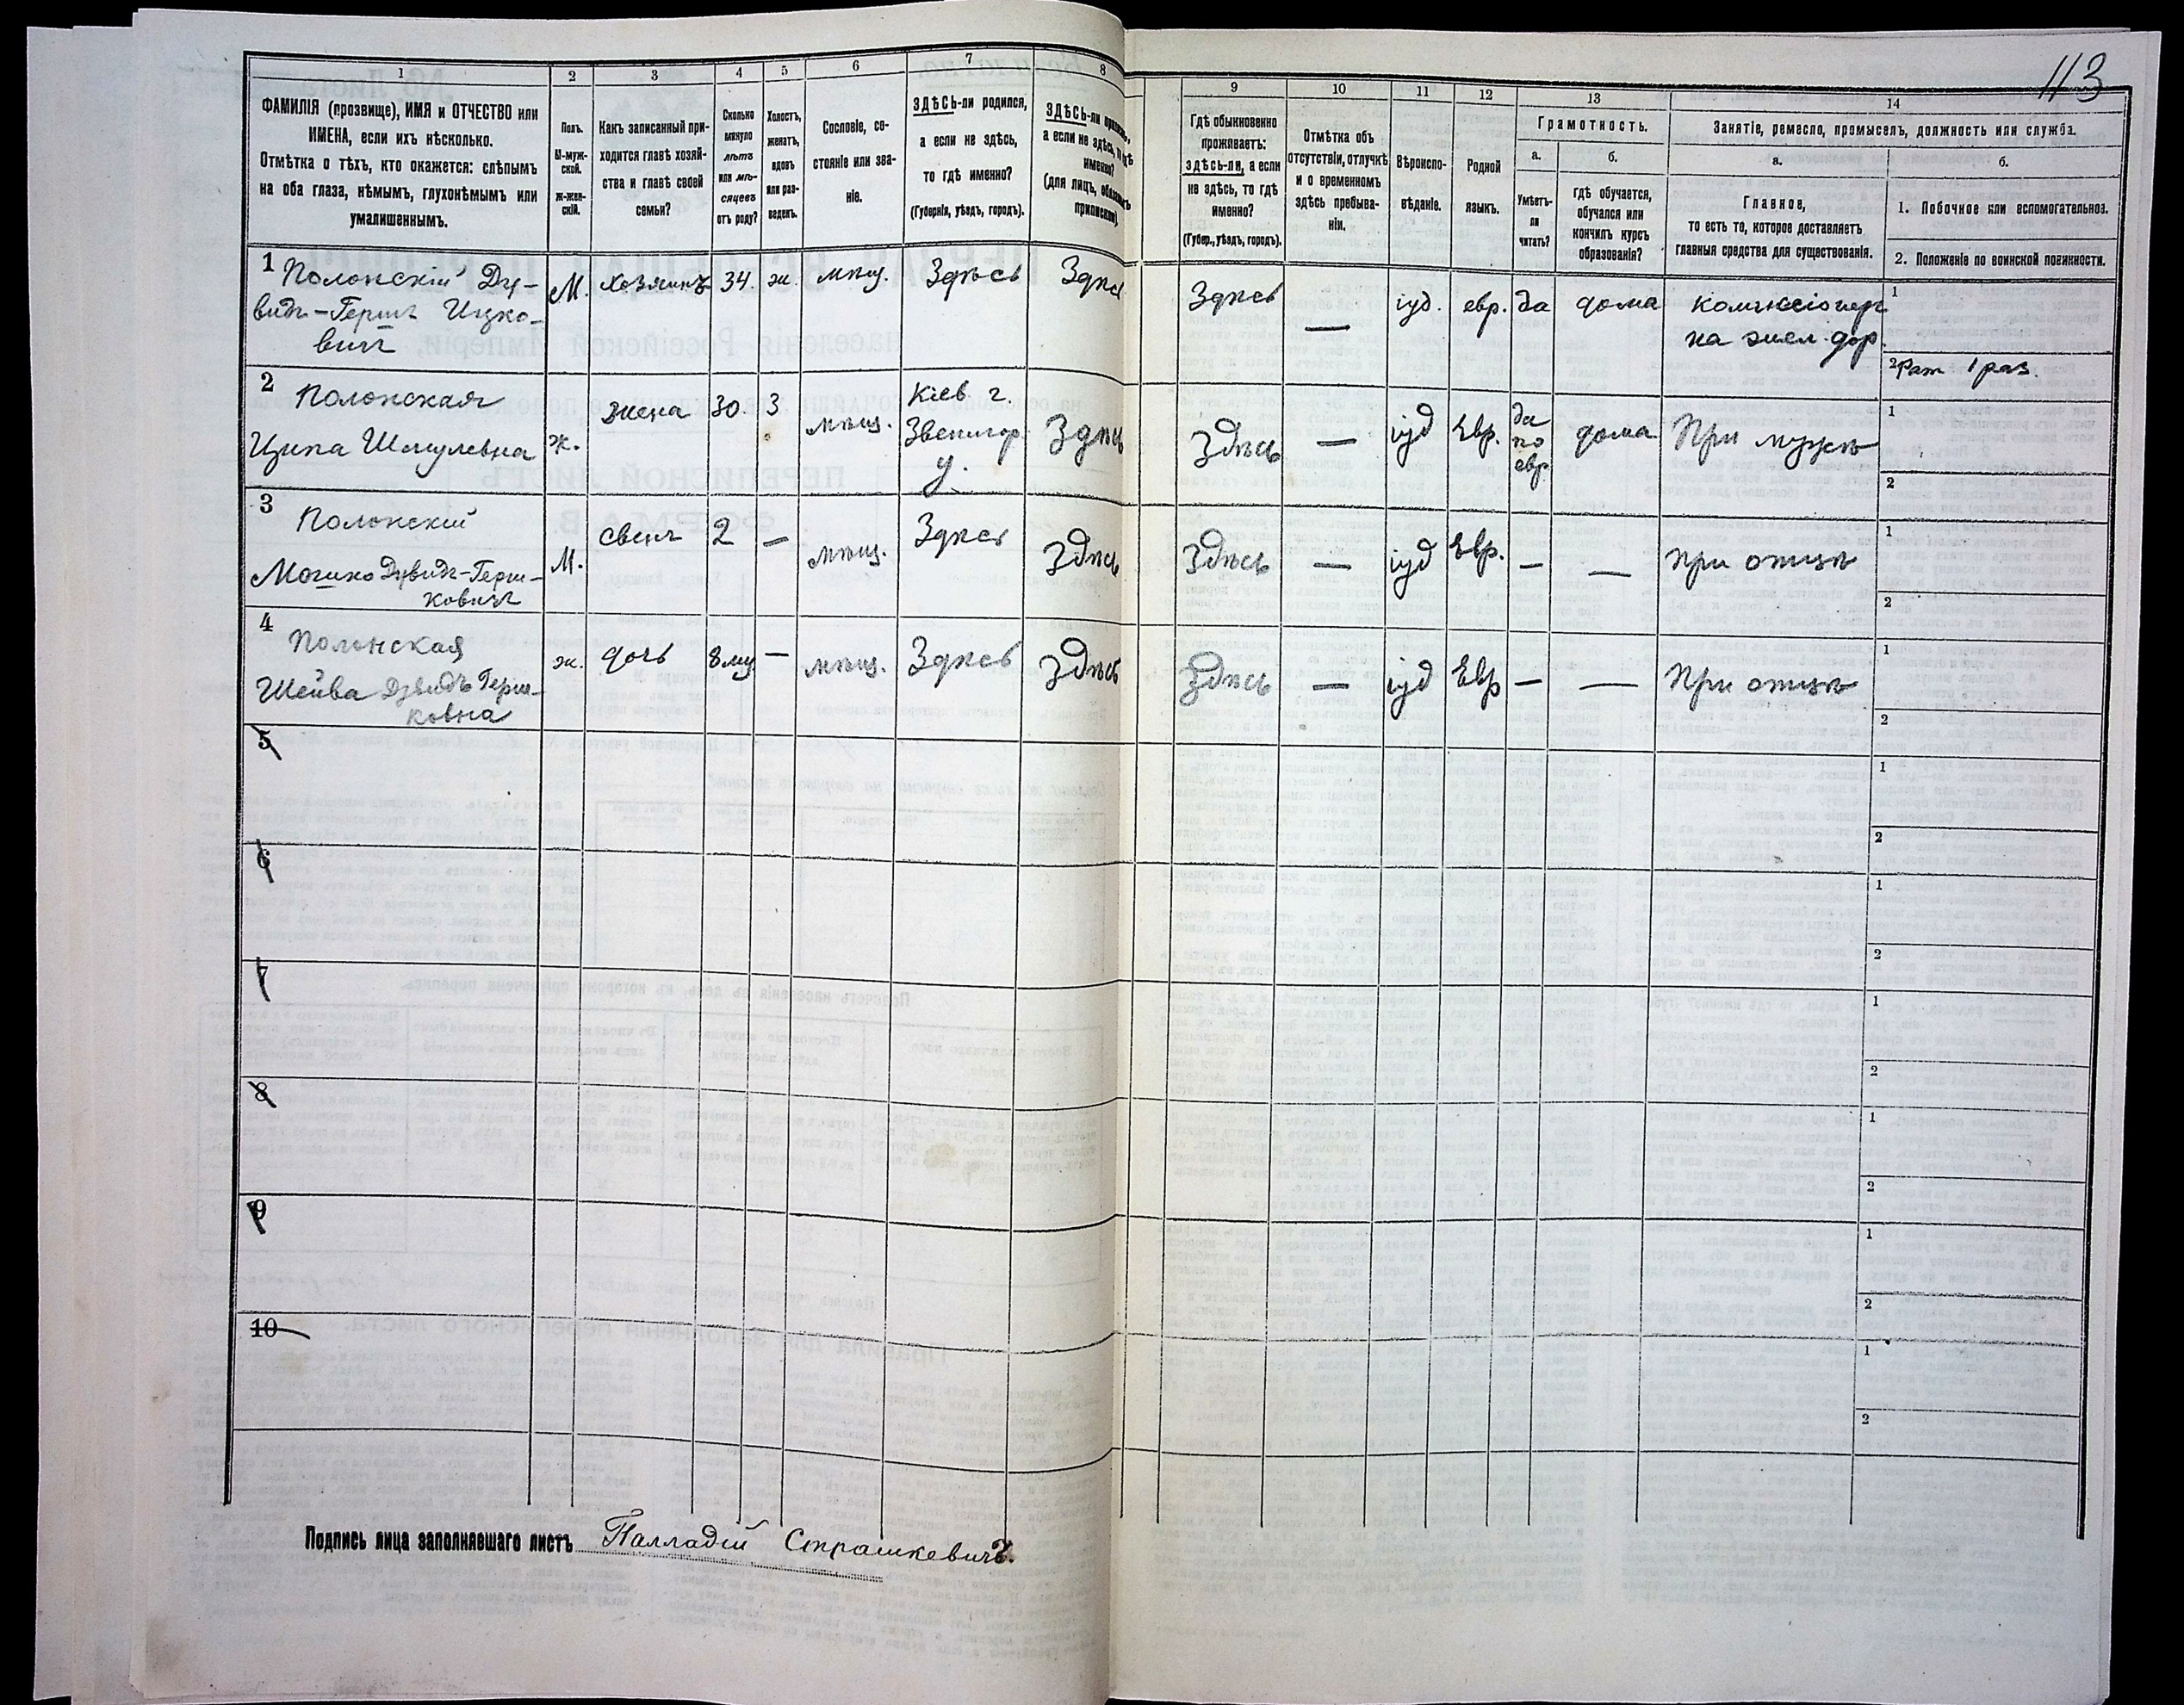 113
1
2
3
4
5
6
7
8
9
10
11
12
13
14
ФАМИЛІЯ (прозвище), ИМЯ и ОТЧЕСТВО или
ИМЕНА, если ихъ нѣсколько.
Отмѣтка о тѣхъ, кто окажется: слѣпымъ
на оба глаза, нѣмымъ, глухонѣмымъ или
умалишеннымъ.
Полъ.
М-муж-
ской.
Ж-жен-
скій.
Какъ записанный при-
ходится главѣ хозяй-
ства и главѣ своей
семьи?
Сколько
минуло
лѣтъ
или мѣ-
сяцевъ
отъ роду?
Холостъ,
женатъ,
вдовъ
или раз-
веденъ.
Сословіе, со-
стояніе или зва-
ніе.
ЗДѢСЬ-ли родился,
а если не здѣсь,
то гдѣ именно?
(Губернія, уѣздъ, городъ).
ЗДѢСЬ-ли
а если не здѣсь,
именно?
(для лицъ,
Гдѣ обыкновенно
проживаетъ:
здѣсь-ли, а если
не здѣсь, то гдѣ
именно?
(Губер., уѣздъ, городъ).
Отмѣтка объ
отсутствіи, отлучкѣ
и о временномъ
здѣсь пребыва-
ніи.
Вѣроиспо-
вѣданіе.
Родной
языкъ.
Грамотность.
а.
б.
Умѣетъ-
ли
читать?
Гдѣ обучается,
обучался или
кончилъ курсъ
образованія?
Занятіе, ремесло, промыселъ, должность или служба.
а.
б.
Главное,
то есть то, которое доставляетъ
главныя средства для существованія.
1. Побочное или вспомогательное.
2. Положеніе по воинской повинности.
1 Полонскій Ду-
видъ-Гершъ Ицко-
вичъ
М.
хозяинъ
34.
ж.
мѣщ.
Здѣсь
Здѣсь
Здѣсь
—
іуд.
евр.
да
дома
комиссіонер
на жел. дор.
1
2 Рат 1 раз.
2 Полонская
Ципа Шмулевна
ж.
жена
30.
3
мѣщ.
Кіев. г.
Звенигор.
у.
Здѣсь
Здѣсь
—
іуд
Евр.
да
по
евр.
дома
При мужѣ
1
2
3 Полонскій
Мошко Дувидъ-Герш-
ковичъ
М.
сынъ
2
—
мѣщ.
Здѣсь
Здѣсь
Здѣсь
—
іуд
Евр.
—
—
При отцѣ
1
2
4 Полонская
Шейва Дувидъ Герш-
ковна
ж.
дочь
8 м
—
мѣщ.
Здѣсь
Здѣсь
Здѣсь
—
іуд
Евр
—
—
При отцѣ
1
2
5
1
2
6
1
2
7
1
2
8
1
2
9
1
2
10
1
2
Подпись лица заполнявшаго листъ Палладій Страшкевичъ.